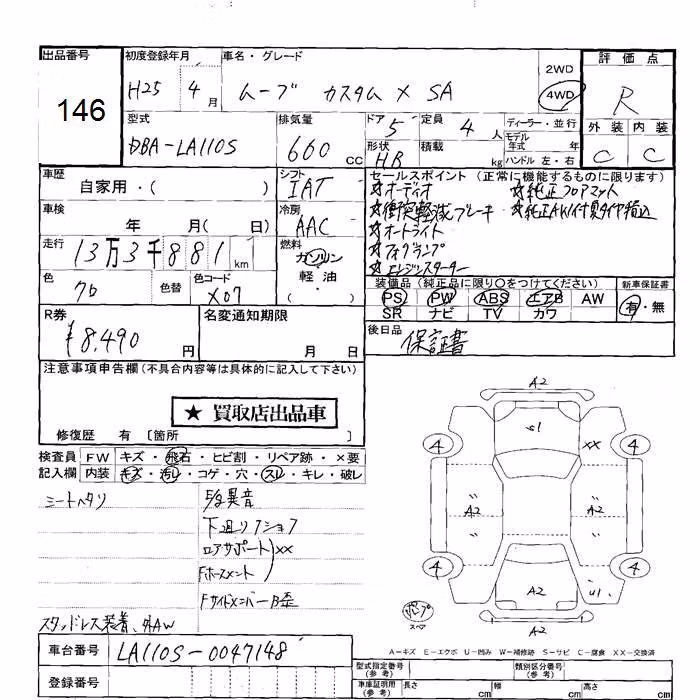 出品番号
146
初度登録年月
H25 4月
車名・グレード
ムーブ カスタム X SA
2WD
4WD
評価点
R
外装 内装
C C
型式
DBA-LA110S
排気量
660 cc
ドア 5
定員 4 人
形状 HB
積載 kg
ディーラー・並行
モデル年式 年
ハンドル 左・右
車歴
自家用・( )
シフト
IAT
車検
年 月( 日)
冷房
AAC
走行
13万3千881km
燃料
ガソリン
軽油・
( )
色
クロ
色替
色コード
X07
セールスポイント (正常に機能するものに限ります)
☆オーディオ ☆純正フロアマット
☆衝突軽減ブレーキ ☆純正AW付夏タイヤ積込
☆オートライト
☆フォグランプ
☆エンジンスターター
装備品 (純正品に限り○をつけてください) 新車保証書
PS PW ABS エアB AW
SR ナビ TV カワ
有・無
R券
¥8,490円
名変通知期限
月 日
後日品
保証書
注意事項申告欄 (不具合内容等は具体的に記入して下さい)
★ 買取店出品車
修復歴 有 〔箇所
検査員記入欄
FW キズ・飛石・ヒビ割・リペア跡・×要
内装 キズ・汚れ・コゲ・穴・スレ・キレ・破レ
シートヘタリ
F/S異音
下廻りフショク
ロアサポート)XX
Fホースメント
FサイドメンバーB歪
スタッドレス装着、外AW
A2
S1
XX
4
4
A2
A2
4
4
A2
U1
A2
スペア
A-キズ E-エクボ U-凹み W-補修跡 S-サビ C-腐食 XX-交換済
車台番号
LA110S-0047148
登録番号
型式指定番号(参考)
類別区分番号(参考)
車庫証明用(参考)
長さ cm
幅 cm
高さ cm